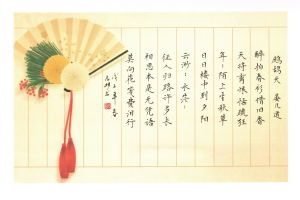 鹧鸪天 晏几道
醉拍春衫惜旧香
天将离恨恼疏狂
年年陌上生秋草
日日楼中到夕阳
云渺渺 水茫茫
征人归路许多长
相思本是无凭语
莫向花笺费泪行
戊子年春